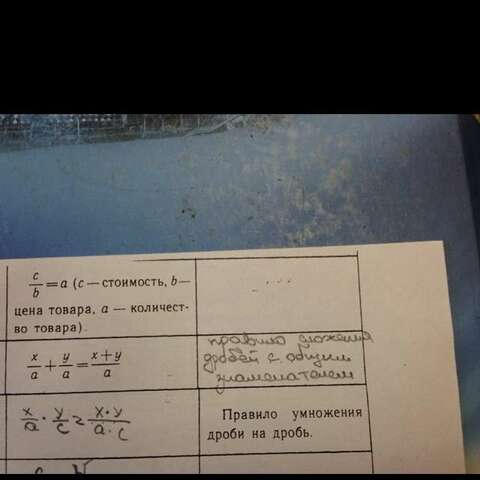 c/b = a (c — стоимость, b —
цена товара, a — количест-
во товара).
x/a + y/a = x+y/a
правило сложения
дробей с общим
знаменателем
x/a · y/c = x·y/a·c
Правило умножения
дроби на дробь.